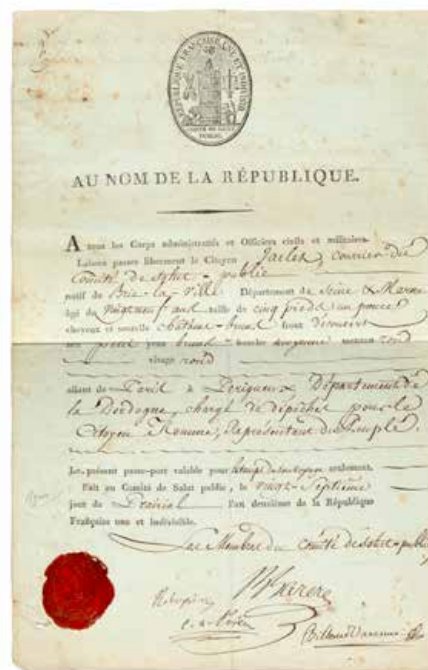 RÉPUBLIQUE FRANÇAISE UNE ET INDIVISIBLE
COMITÉ DE SALUT
PUBLIC.
AU NOM DE LA RÉPUBLIQUE.
A tous les Corps administratifs et Officiers civils et militaires.
Laissez passer librement le Citoyen courrier du
Comité de Salut-public
natif de Brie-la-ville Département de Seine & Marne
âgé de vingt neuf ans taille de cinq pieds un pouce
cheveux et sourcils châtains-bruns front
nez petit yeux bruns bouche moyenne menton rond
visage rond
allant de Paris à Périgueux Département de
la Dordogne, chargé de dépêches pour le
Citoyen Romme, Représentant du Peuple.
Le présent passe-port valable pour seulement.
Fait au Comité de Salut public, le vingt-Septième
jour de Prairial l'an deuxième de la République
Française une et indivisible.
Les Membres du comité de Salut-public
B Barère
Robespierre
Billaud Varenne